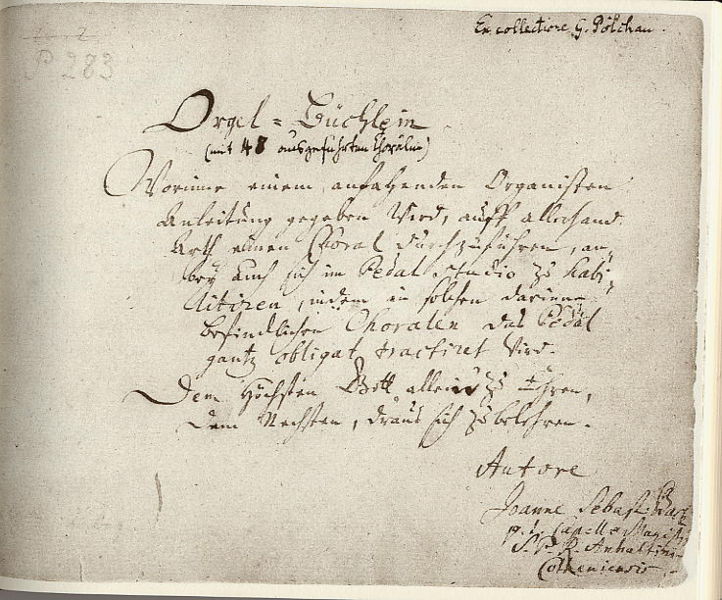 Ex collectione G. Pölchau.
P 283
Orgel-Büchlein
(mit 48 ausgeführten Chorälen)
Worinne einem anfahenden Organisten
Anleitung gegeben wird, auff allerhand
Arth einen Choral durchzuführen, an-
bey auch sich im Pedal studio zu habi-
litiren, indem in solchen darinne
befindlichen Choralen das Pedal
gantz obligat tractiret wird.
Dem Höchsten Gott allein zu Ehren,
Dem Nechsten, draus sich zu belehren.
Autore
Joanne Sebast. Bach
p. t. Capellæ Magistri
S. P. R. Anhaltini-
Cotheniensis.